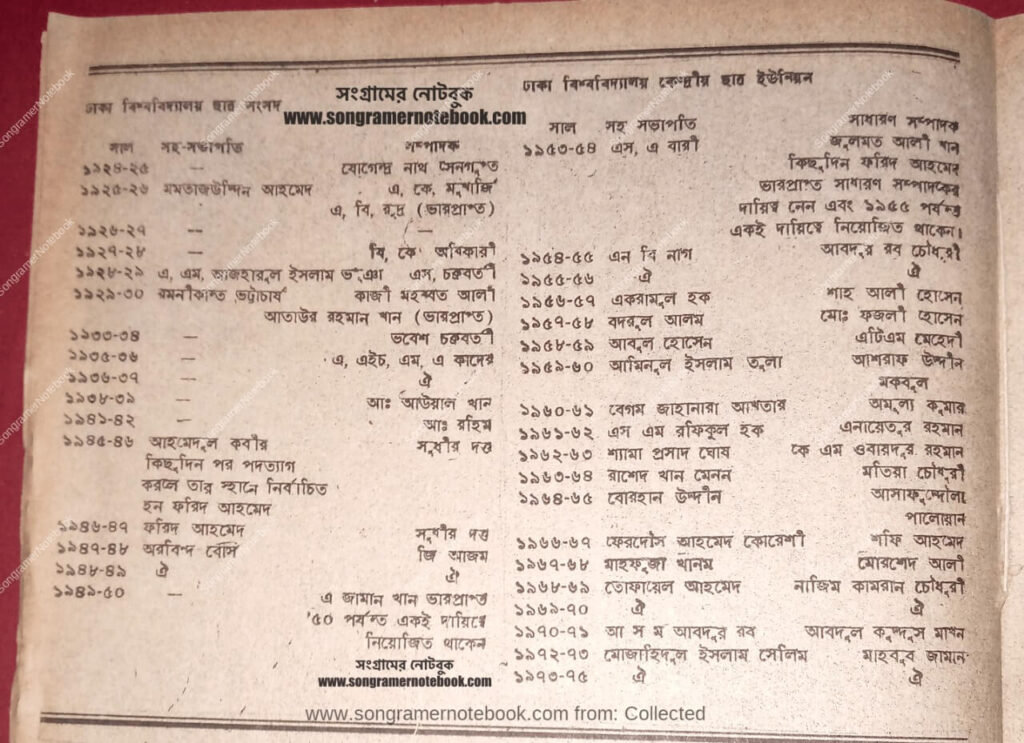 ঢাকা বিশ্ববিদ্যালয় ছাত্র সংসদ
সংগ্রামের নোটবুক
www.songramernotebook.com
সাল সহ-সভাপতি সম্পাদক
১৯২৪-২৫ — যোগেন্দ্র নাথ সেনগুপ্ত
১৯২৫-২৬ মমতাজউদ্দিন আহমেদ এ, কে, মুখার্জি
এ, বি, রুদ্র (ভারপ্রাপ্ত)
১৯২৬-২৭ — —
১৯২৭-২৮ — বি, কে অধিকারী
১৯২৮-২৯ এ, এম, আজহারুল ইসলাম ভূঞা এস, চক্রবর্তী
১৯২৯-৩০ রমনীকান্ত ভট্টাচার্য কাজী মহব্বত আলী
আতাউর রহমান খান (ভারপ্রাপ্ত)
১৯৩৩-৩৪ — ভবেশ চক্রবর্তী
১৯৩৫-৩৬ — এ, এইচ, এম, এ কাদের
১৯৩৬-৩৭ — ঐ
১৯৩৮-৩৯ — আঃ আউয়াল খান
১৯৪১-৪২ — আঃ রহিম
১৯৪৫-৪৬ আহমেদুল কবীর সুধীর দত্ত
কিছুদিন পর পদত্যাগ
করলে তার স্থানে নির্বাচিত
হন ফরিদ আহমেদ
১৯৪৬-৪৭ ফরিদ আহমেদ সুধীর দত্ত
১৯৪৭-৪৮ অরবিন্দ বোস জি আজম
১৯৪৮-৪৯ ঐ ঐ
১৯৪৯-৫০ — এ জামান খান ভারপ্রাপ্ত
'৫০ পর্যন্ত একই দায়িত্বে
নিয়োজিত থাকেন
সংগ্রামের নোটবুক
www.songramernotebook.com
ঢাকা বিশ্ববিদ্যালয় কেন্দ্রীয় ছাত্র ইউনিয়ন
সাল সহ সভাপতি সাধারণ সম্পাদক
১৯৫৩-৫৪ এস, এ বারী জুলমত আলী খান
কিছুদিন ফরিদ আহমেদ
ভারপ্রাপ্ত সাধারণ সম্পাদকের
দায়িত্ব নেন এবং ১৯৫৫ পর্যন্ত
একই দায়িত্বে নিয়োজিত থাকেন।
১৯৫৪-৫৫ এন বি নাগ আবদুর রব চৌধুরী
১৯৫৫-৫৬ ঐ ঐ
১৯৫৬-৫৭ একরামুল হক শাহ আলী হোসেন
১৯৫৭-৫৮ বদরুল আলম মোঃ ফজলী হোসেন
১৯৫৮-৫৯ আবুল হোসেন এটিএম মেহেদী
১৯৫৯-৬০ আমিনুল ইসলাম তুলা আশরাফ উদ্দীন
মকবুল
১৯৬০-৬১ বেগম জাহানারা আখতার অমূল্য কুমার
১৯৬১-৬২ এস এম রফিকুল হক এনায়েতুর রহমান
১৯৬২-৬৩ শ্যামা প্রসাদ ঘোষ কে এম ওবায়দুর রহমান
১৯৬৩-৬৪ রাশেদ খান মেনন মতিয়া চৌধুরী
১৯৬৪-৬৫ বোরহান উদ্দীন আসাফুদ্দৌলা
পালোয়ান
১৯৬৬-৬৭ ফেরদৌস আহমেদ কোরেশী শফি আহমেদ
১৯৬৭-৬৮ মাহফুজা খানম মোরশেদ আলী
১৯৬৮-৬৯ তোফায়েল আহমেদ নাজিম কামরান চৌধুরী
১৯৬৯-৭০ ঐ ঐ
১৯৭০-৭১ আ স ম আবদুর রব আবদুল কুদ্দুস মাখন
১৯৭২-৭৩ মোজাহিদুল ইসলাম সেলিম মাহবুব জামান
১৯৭৩-৭৫ ঐ ঐ
www.songramernotebook.com from: Collected